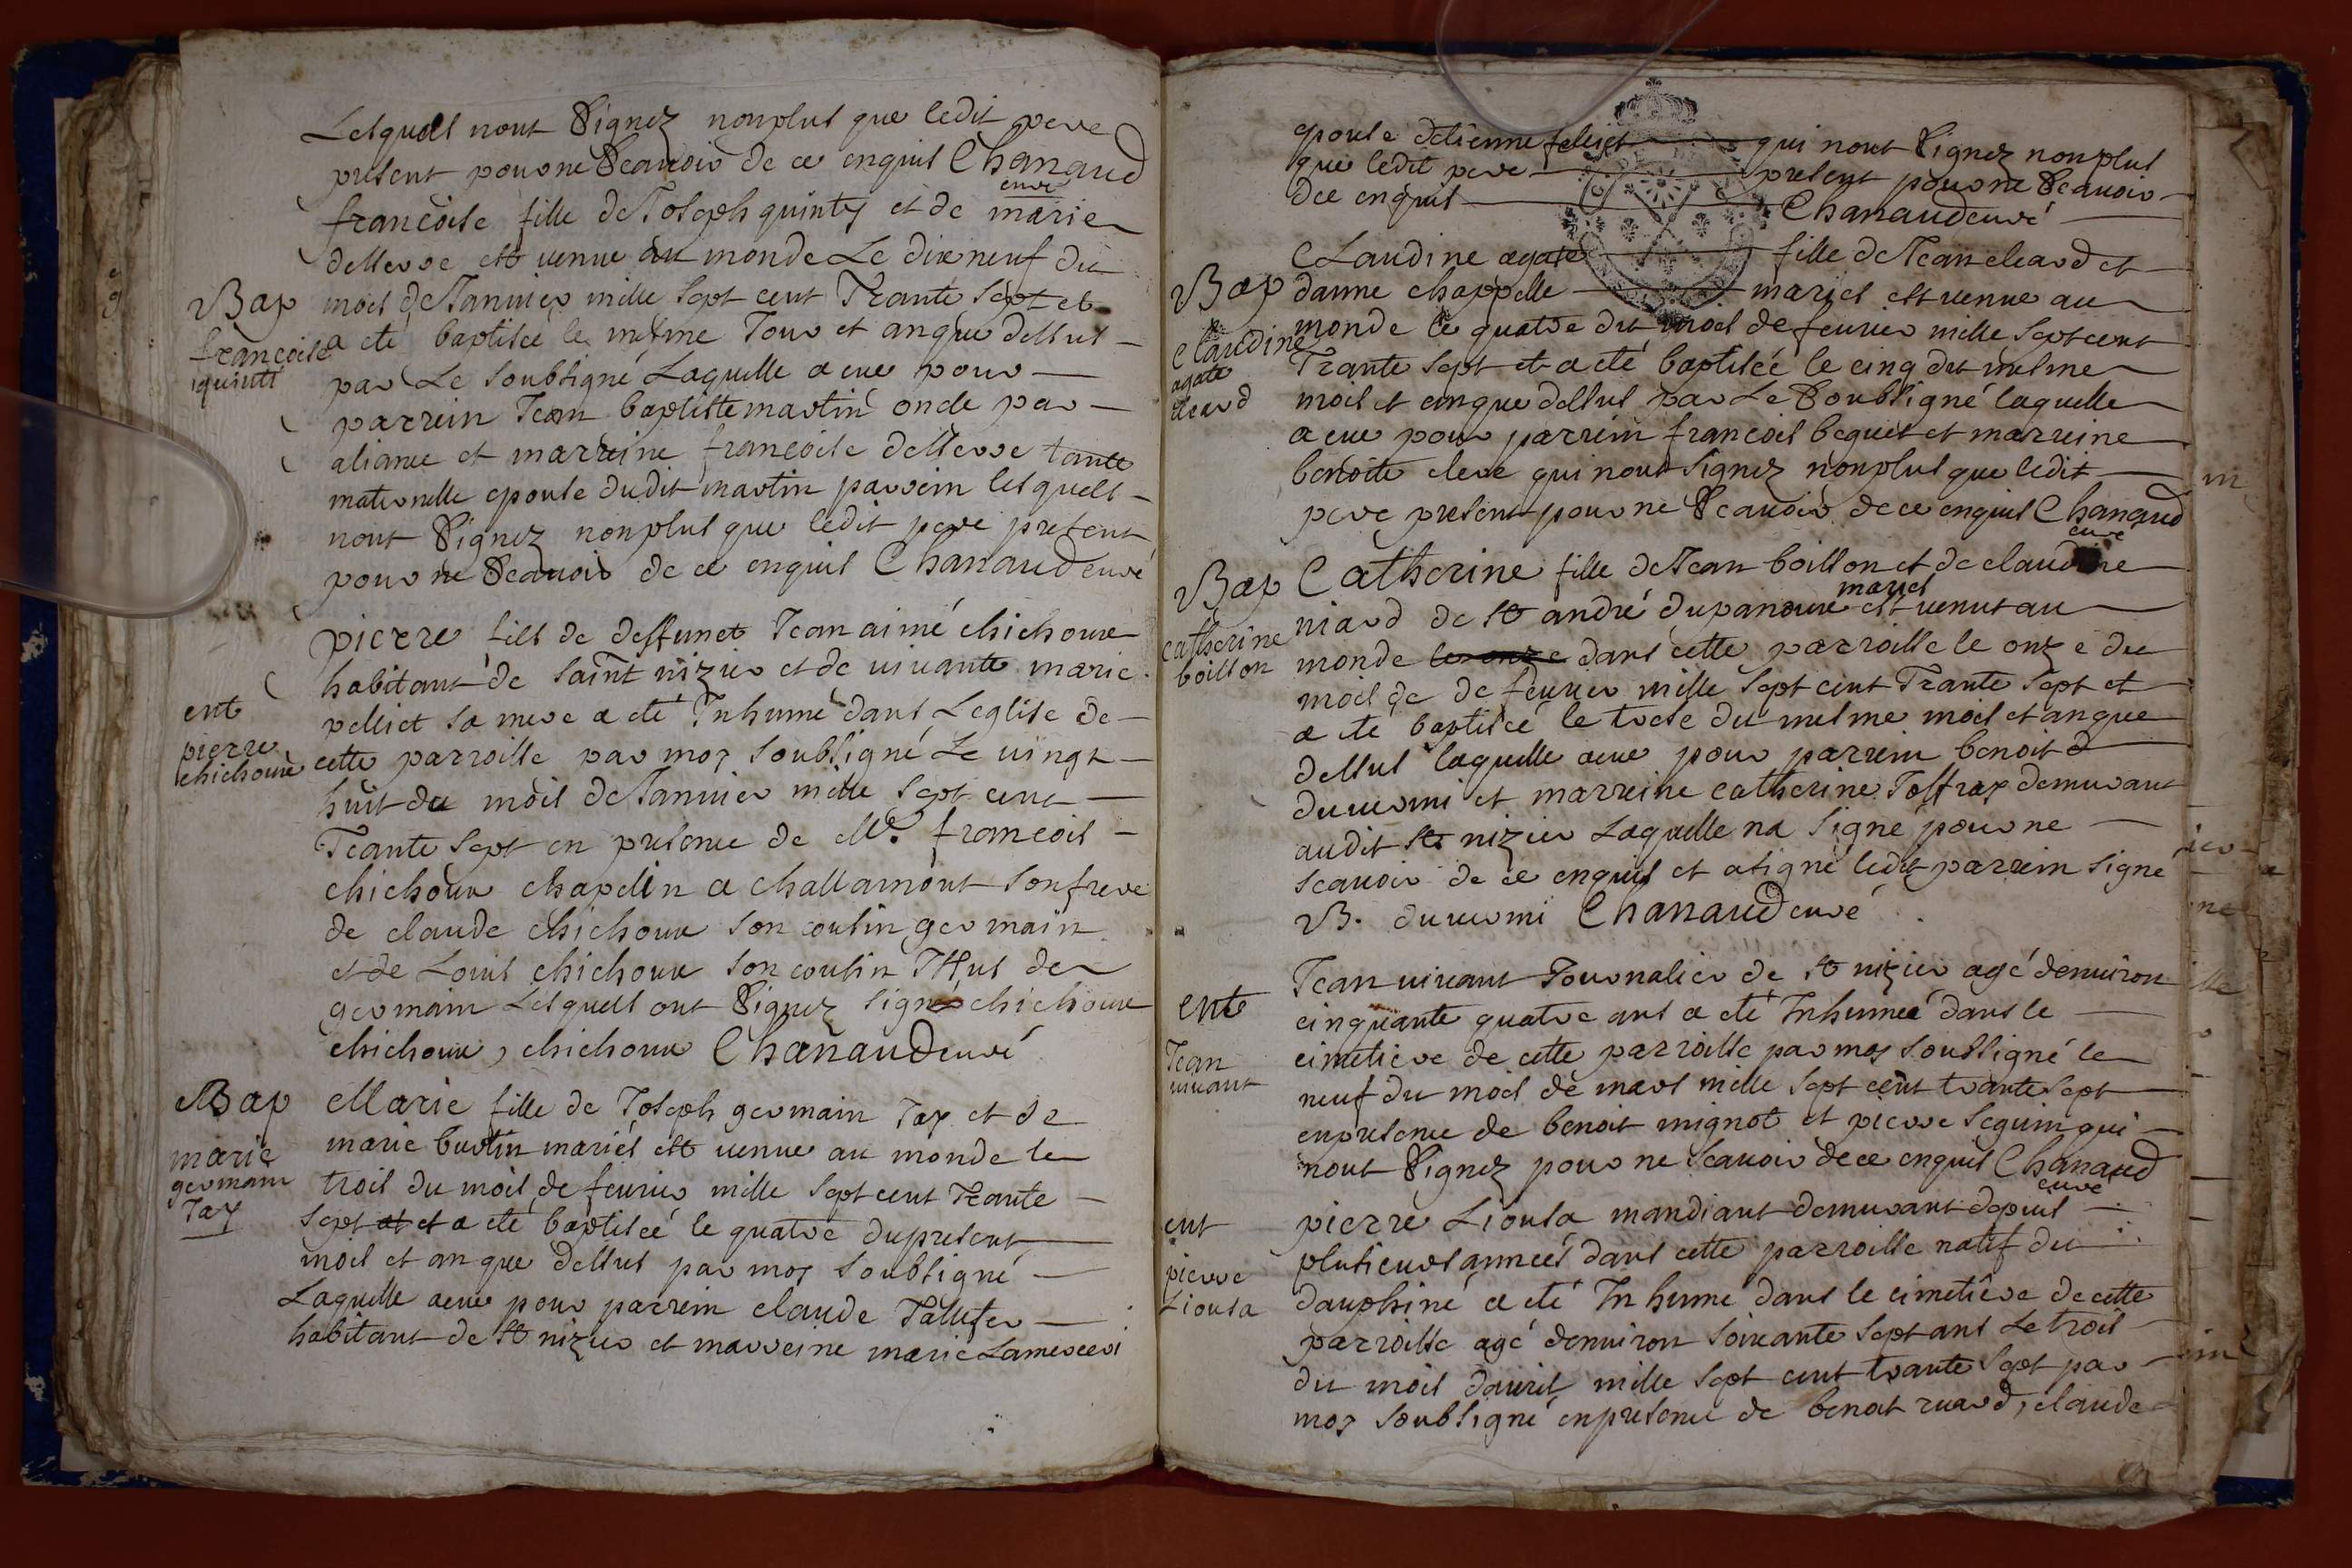 Lesquels nont Signez nonplus que ledit pere
present pour ne Scauoir de ce enquis Chanaud
curé
francoise fille de Joseph quinty et de marie
desserre est venue au monde Le dixneuf du
Bap
francoise
quinti
mois de Januier mille sept cent Trante sept et
a eté baptisée le mesme Jour et anque dessus
par Le soubsigné Laquelle a eue pour
parrein Jean baptiste martin oncle par
aliance et marreine francoise desserre tante
maternelle epouse dudit martin parrein lesquels
nont Signez nonplus que ledit pere present
pour ne Scauoir de ce enquis Chanaud curé
pierre fils de deffunct Jean aimé chichoux
habitant de saint nizier et de uiuante marie
ent
pierre
chichoux
pelliet sa mere a eté Inhumé dans Leglise de
cette parroisse par moy soubsigné Le uingt
huit du mois de Januier mille sept cent
Trante sept en presence de Mr. francois
chichoux chapelin a challamont son frere
de claude chichoux son cousin germain
et de Louis chichoux son cousin Issus de
germain Lesquels ont Signez signé chichoux
chichoux, chichoux Chanaud curé
Bap
marie
germain
Jay
Marie fille de Joseph germain Jay et de
marie burtin mariés est venue au monde le
trois du mois de feurier mille sept cent Trante
sept et et a eté baptiseé le quatre dupresent
mois et an que dessus par moy soubsigné
Laquelle aeue pour parrein claude
habitant de st nizier et marreine marie
epouse detienne felliet qui nont Signez nonplus
que ledit pere present pour ne Scauoir
dce enquis Chanaud curé
Bap
Claudine
agate
cleard
CLaudine agate fille de Jean cleard et
danne chappelle mariés est venue au
monde le quatre du mois de feurier mille sept cent
Trante sept et a eté baptiseé le cinq du mesme
mois et anque dessus par Le Soubsigné laquelle
a eue pour parrein francois beguet et marreine
benoite clere qui nont signez nonplus que ledit
pere present pour ne Scauoir dece enquis Chanaud
curé
Bap
catherine
boisson
Catherine fille de Jean boisson et de claudine
mariés
niard de st andré dupanoux est venut au
monde le onze dans cette parroisse le onze du
mois de de feurier mille sept cent Trante sept et
a eté baptiseé le trese du mesme mois et anque
dessus laquelle aeue pour parrein benoit d
duuermi et marreine catherine Joffray demurant
audit st nizier Laquelle na signé pour ne
scauoir de ce enquis et asigné ledit parrein signé
B. duuermi Chanaud curé
ent
Jean
uiuant
Jean uiuant Journalier de st nizier agé denuiron
cinquante quatre ans a eté Inhumeé dans le
cimetiere de cette parroisse par moy soubsigné le
neuf du mois de mars mille sept cent trante sept
enpresence de benoit mignot et pierre seguin qui
nont Signez pour ne scauoir dece enquis Chanaud
curé
ent
pierre
Liousa
pierre Liousa mandiant demurant depuis
plusieurs anneés dans cette parroisse natif du
dauphiné a eté Inhumé dans le cimetiêre de cette
parroisse agé denuiron soixante sept ans Le trois
du mois dauril mille sept cent trante sept par
moy soubsigné enpresence de benoit ruard, claude